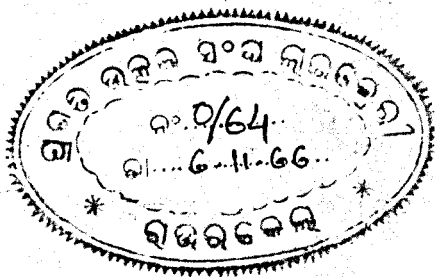 ଉତ୍କଳ ସଂଘ ଲାଇବ୍ରେରୀ
ନଂ..0/64..
ତା....6-11-66..
ରାଉରକେଲା